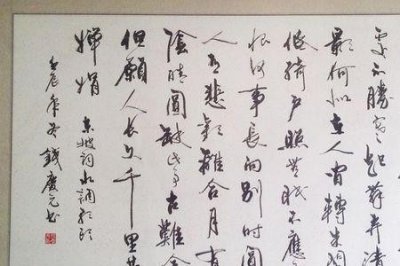 處不勝寒起舞弄清
影何似在人間轉朱閣
低綺戶照無眠不應
恨何事長向別時圓
人有悲歡離合月有
陰晴圓缺此事古難全
但願人長久千里共
嬋娟 東坡詞水調歌頭
壬辰年冬 錢慶元書